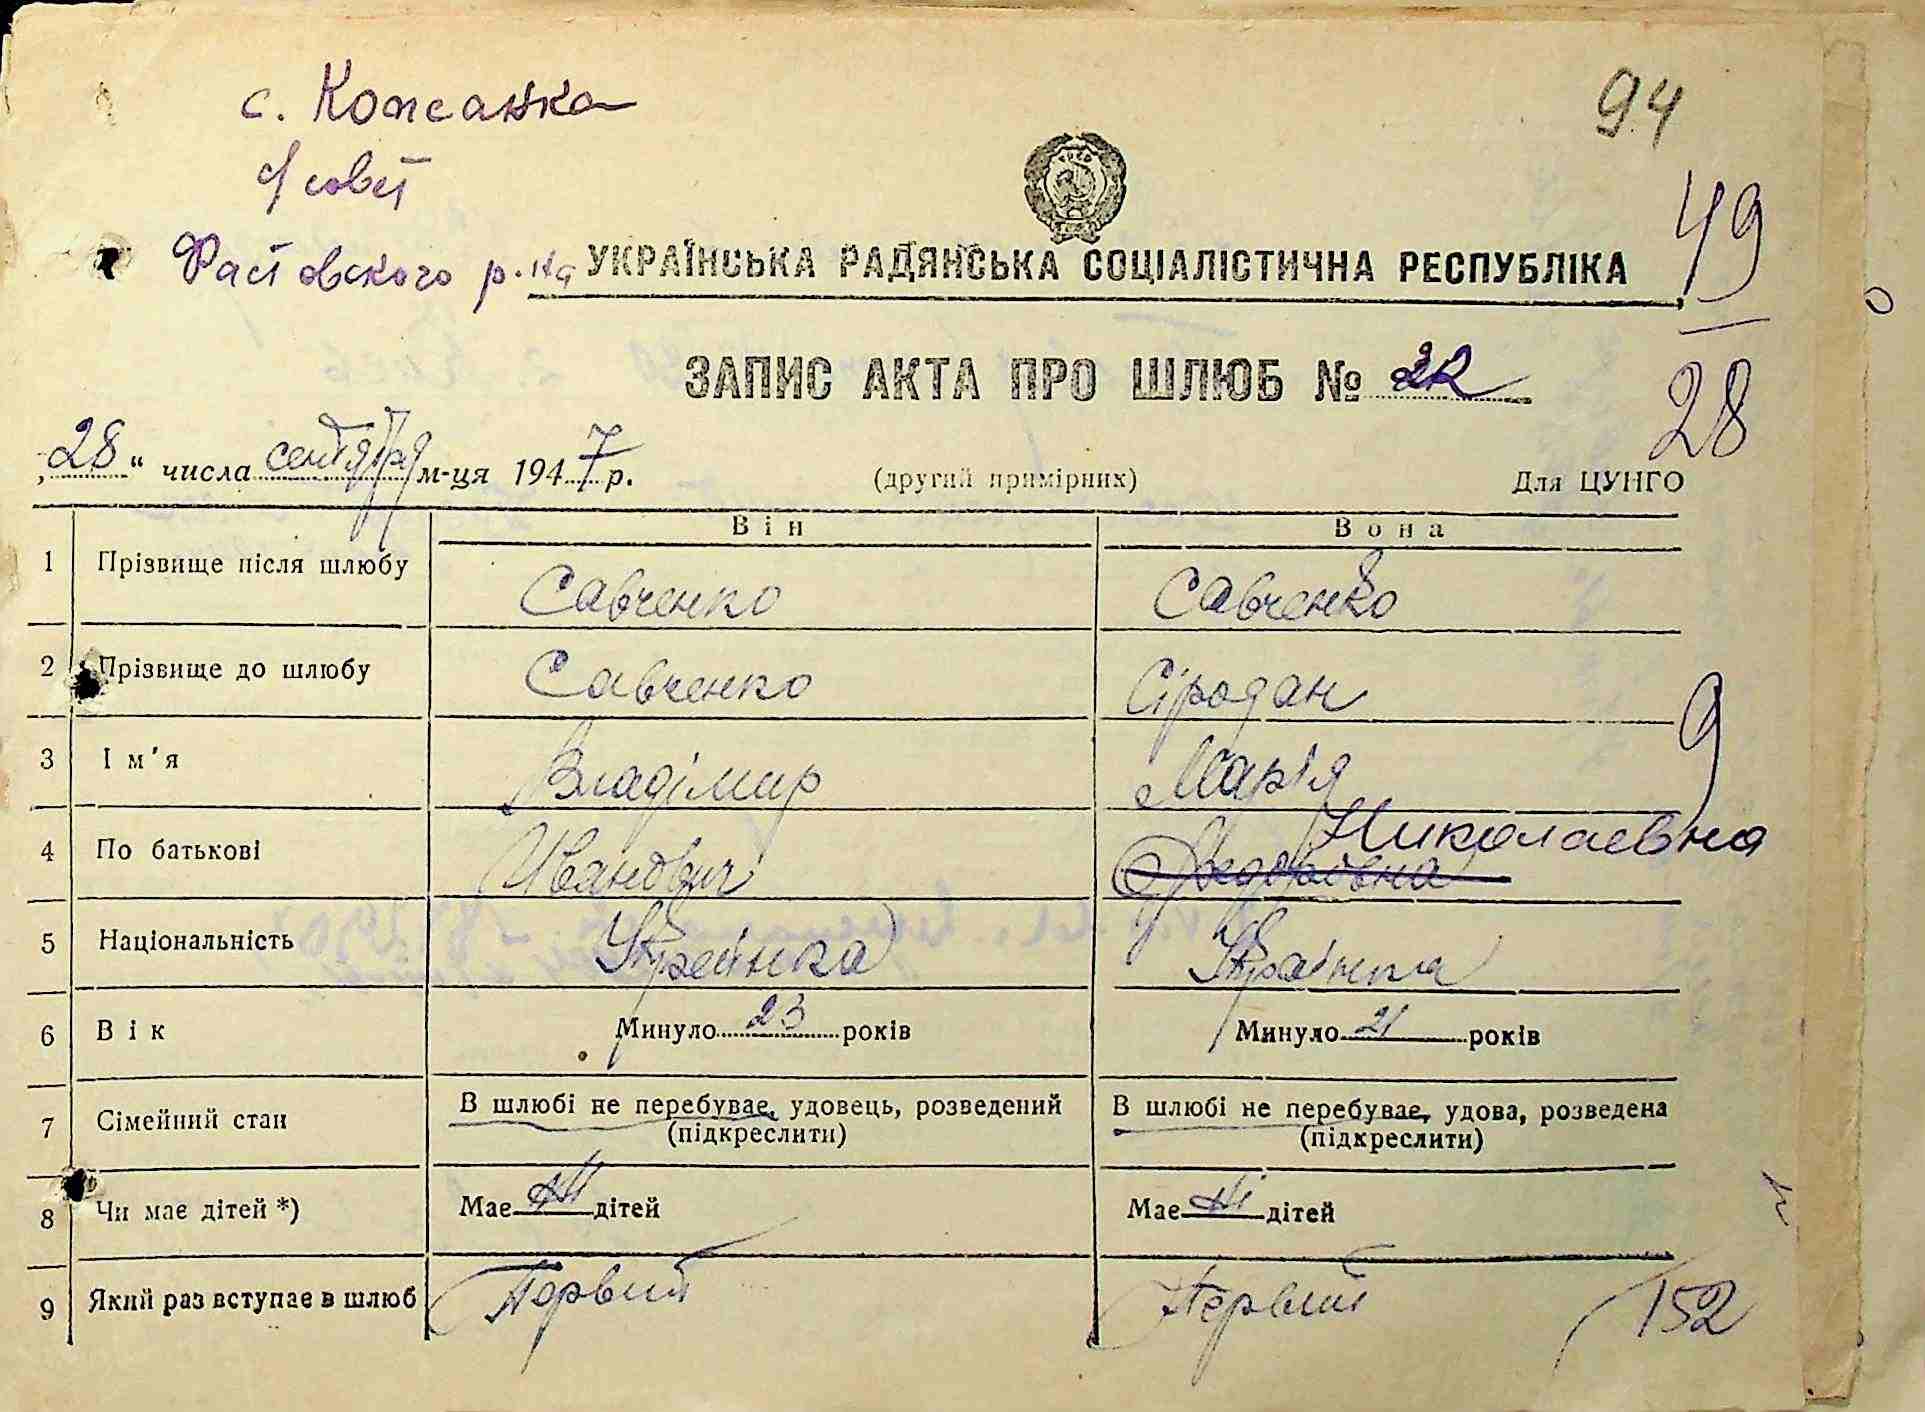 с. Кожанка
94
с/совет
49
Фастовского р-на
УКРАЇНСЬКА РАДЯНСЬКА СОЦІАЛІСТИЧНА РЕСПУБЛІКА
ЗАПИС АКТА ПРО ШЛЮБ № 22
28
„28“ числа сентября м-ця 1947 р.
(другий примірник)
Для ЦУНГО
Він Вона
1 Прізвище після шлюбу Савченко Савченко
2 Прізвище до шлюбу Савченко Сіродан
3 Ім'я Владімир Марія
Николаевна
4 По батькові Иванович Федоровна
5 Національність Українка
6 Вік Минуло 23 років Минуло 21 років
7 Сімейний стан В шлюбі не перебуває, удовець, розведений В шлюбі не перебуває, удова, розведена
(підкреслити) (підкреслити)
8 Чи має дітей *) Має ні дітей Має ні дітей
9 Який раз вступає в шлюб Первий Первий
152